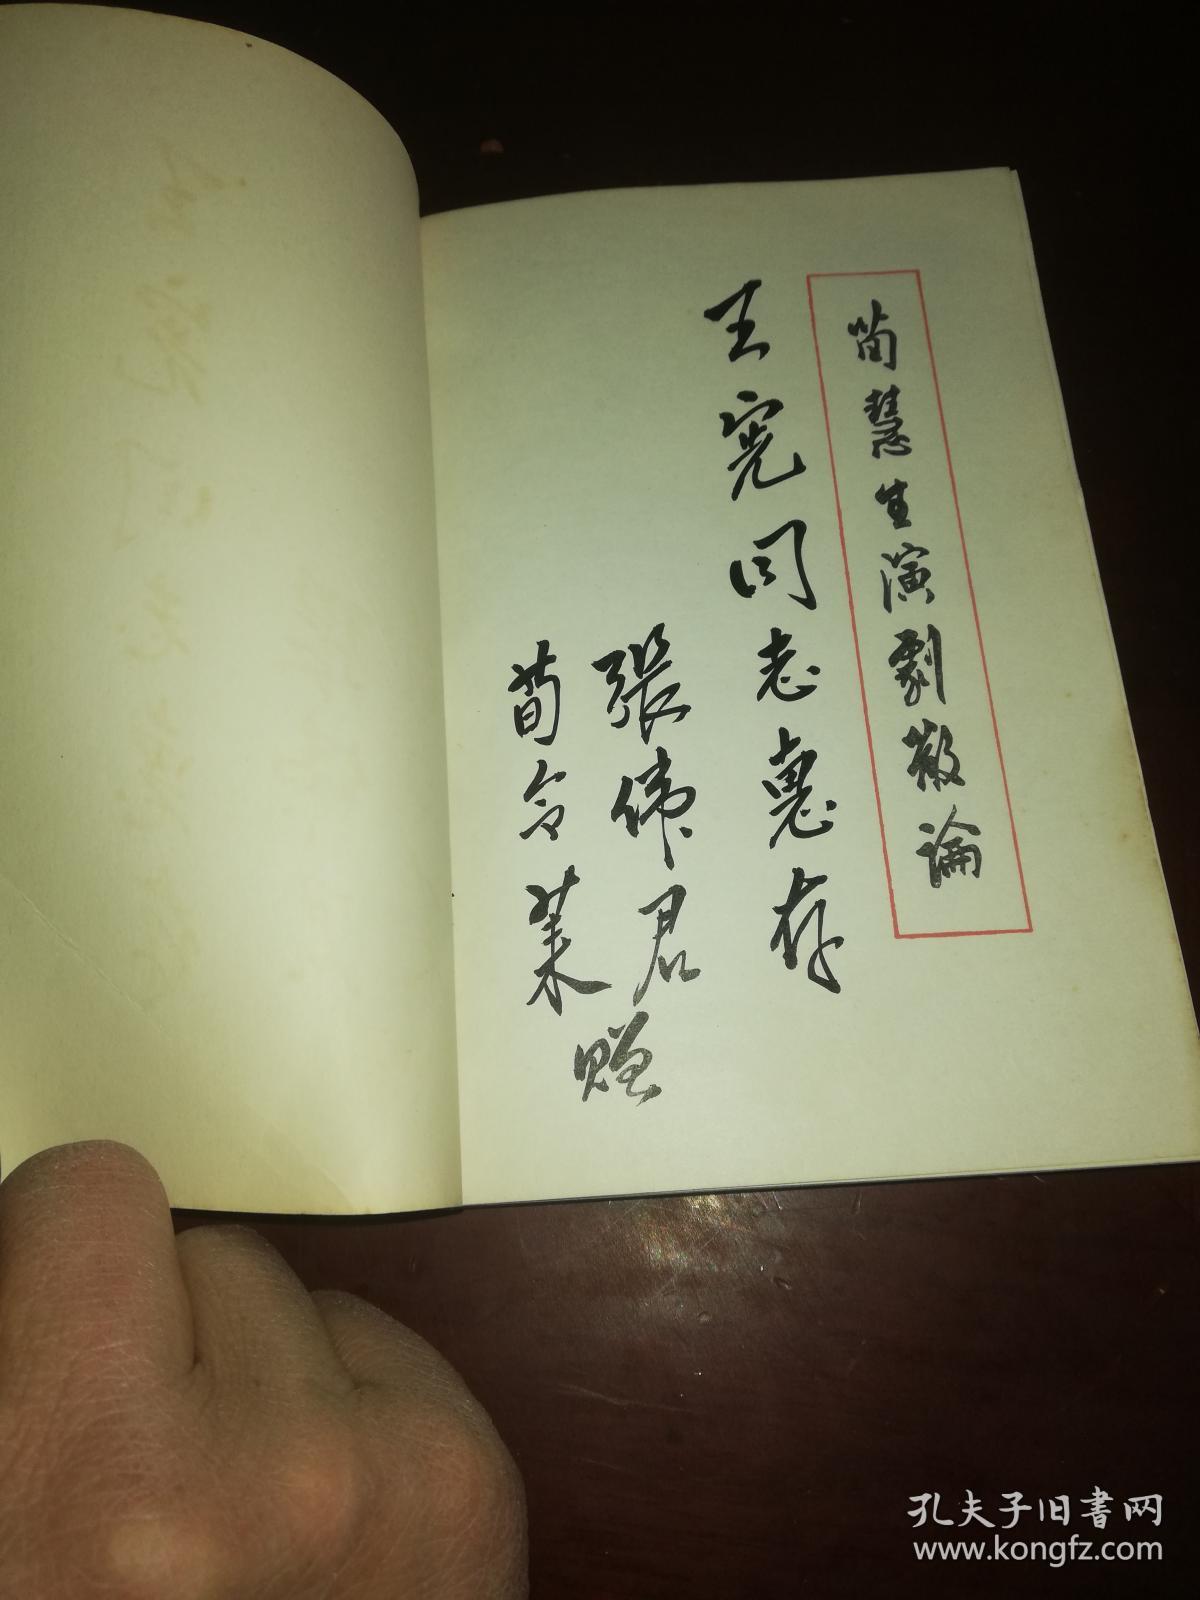 荀慧生演劇散論
王宪同志惠存
張偉君
荀令莱
赠
孔夫子旧书网
www.kongfz.com